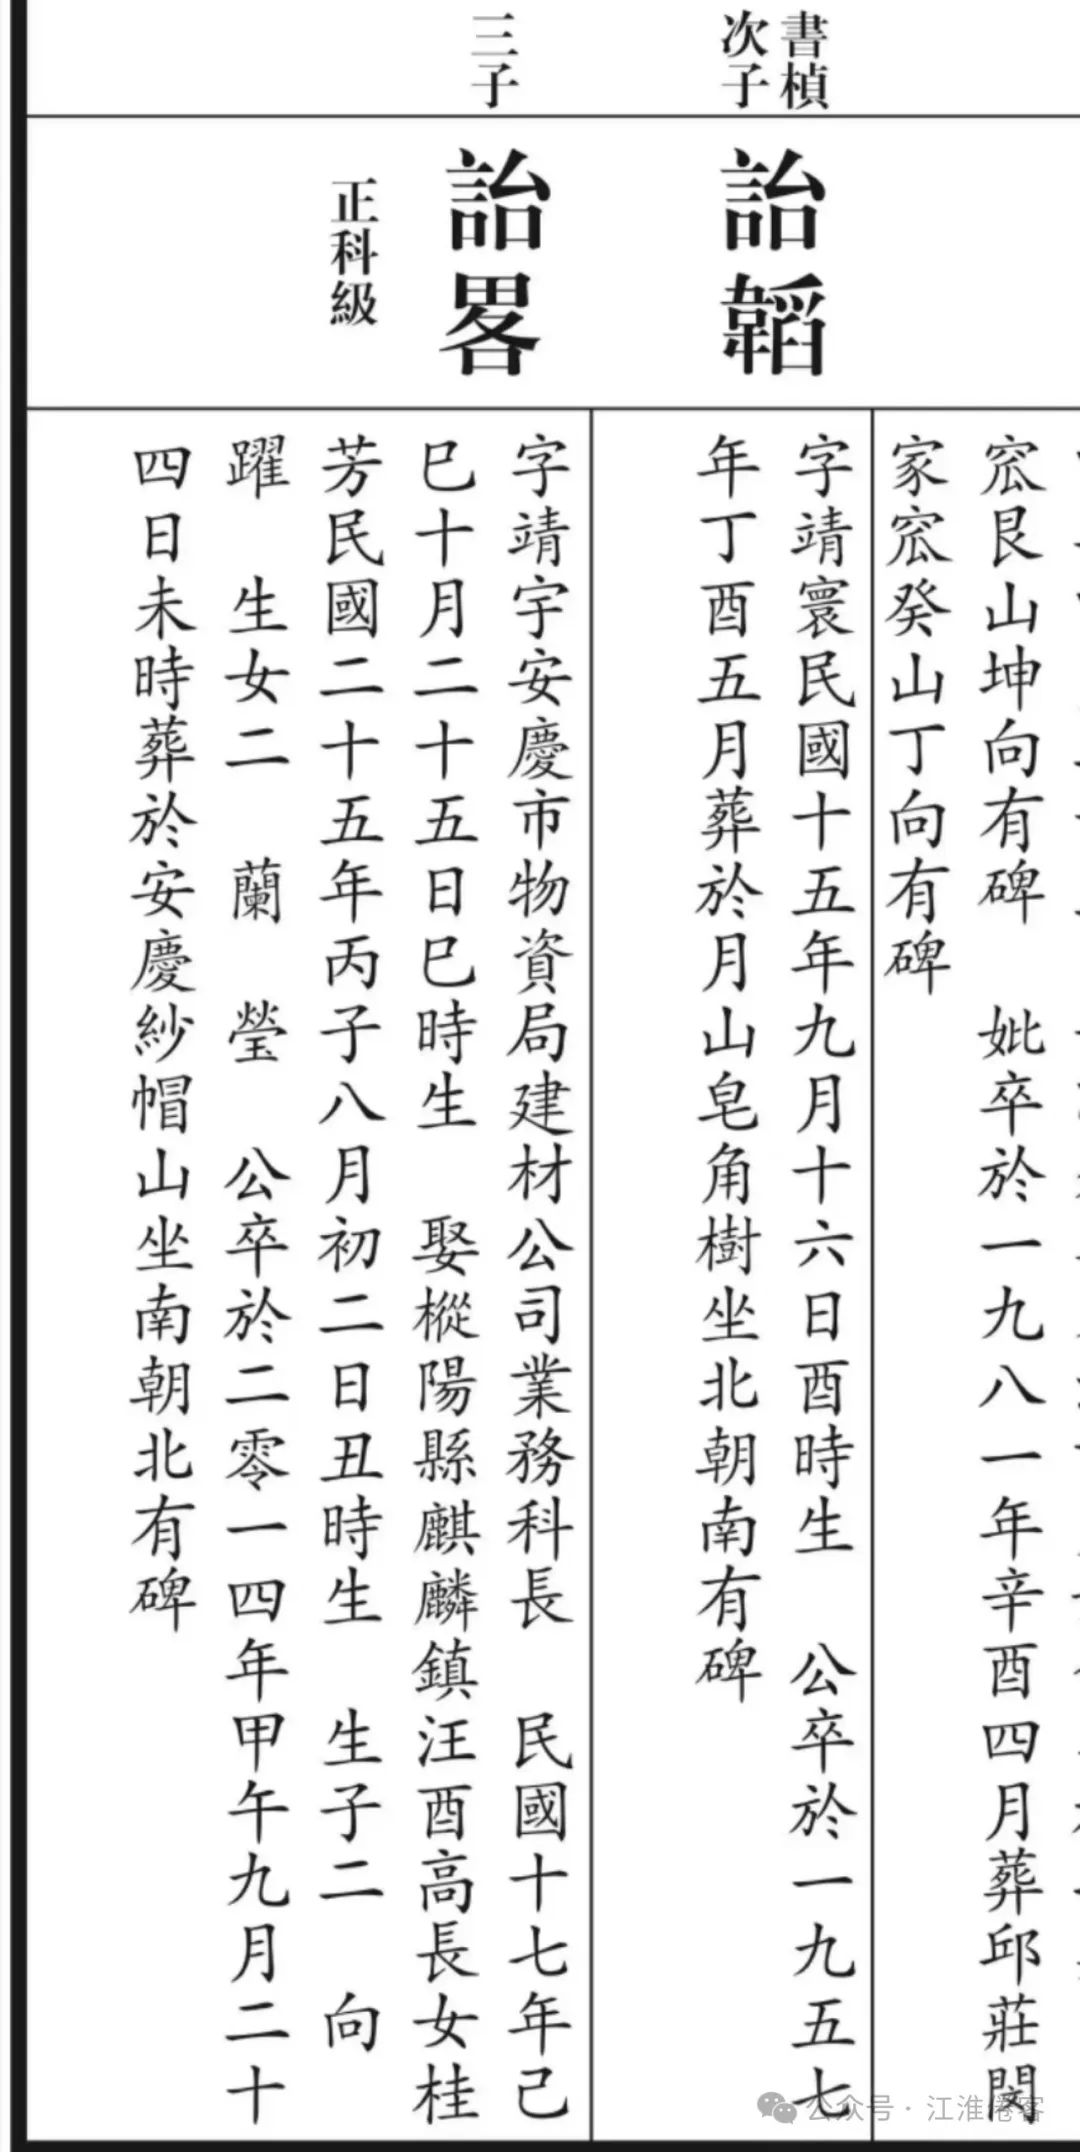 窊艮山坤向有碑 妣卒於一九八一年辛酉四月葬邱莊閔
家窊癸山丁向有碑
書楨
次子
詒韜
字靖寰民國十五年九月十六日酉時生 公卒於一九五七
年丁酉五月葬於月山皂角樹坐北朝南有碑
三子
詒畧
正科級
字靖宇安慶市物資局建材公司業務科長 民國十七年己
巳十月二十五日巳時生 娶樅陽縣麒麟鎮汪酉高長女桂
芳民國二十五年丙子八月初二日丑時生 生子二 向
躍 生女二 蘭 瑩 公卒於二零一四年甲午九月二十
四日未時葬於安慶紗帽山坐南朝北有碑
公众号 · 江淮倦客